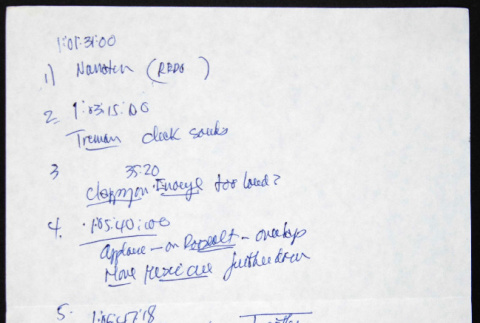 1:01:31:00
1) Narration (REDO)
2. 1:03:15:00
Truman check souks
3 35:20
clapping · Inouye too loud?
4. 1:05:40:00
Applause — on Roosevelt — overlap
Move Mexican further down
5. 1:05:47:18